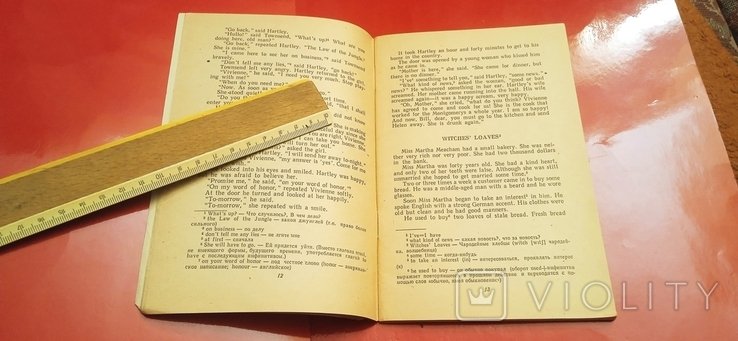 "Go back," said Hartley.
"Hullo!" said Townsend, "What's up? What are you
doing here, old man?"
"Go back," repeated Hartley. "The Law of the Jungle.
She is mine."
"I came here to see her on business," said Townsend
bravely.
"Don't tell me any lies," said Hartley, "go back!"
Townsend left very angry. Hartley returned to the girl.
"Vivienne," he said, "I need you very much. Stop play-
ing with me!"
"When do you need me?"
"Now. As soon as you
She stood quietly
"Do you th
enter
did not know
She is making
You are right, Vivienne,
I can take you home. She
Hartley. "I will send her away to-night."
Vivienne, "my answer is 'yes'. Come for me
asked the girl.
looked into her eyes and smiled. Hartley was happy.
He was afraid to believe her.
"Promise me," he said, "on your word of honor."
"On my word of honor," repeated Vivienne softly.
At the door he turned and looked at her happily.
"To-morrow," he said.
"To-morrow," she repeated.
¹ What's up? — Что случилось? В чем дело?
² the Law of the Jungle — закон джунглей (т.е. право
сильного)
³ on business — по делу
⁴ don't tell me any lies — не лги мне
⁵ at first — сначала
⁶ She will have to go. — Ей придется уйти. (Вместо глагола must,
не имеющего формы будущего времени, употребляется глагол to
have с последующим инфинитивом.)
⁷ on your word of honor — под честное слово (honor — американ-
ское написание; honour — английское)
12
It took Hartley an hour and forty minutes to get to his
home in the country.
The door was opened by a young woman who kissed him
as he came in.
"Mother is here," she said. "She came for dinner, but
there is no dinner."
"I've¹ something to tell you," said Hartley, "some news."
"What kind of news,² asked the woman, "good or bad
news?" He whispered something in her ear. Hartley's wife
screamed. Her mother came running into the hall. His wife
screamed again—it was a happy scream, very happy.
"Oh, Mother," she cried, "what do you think? Vivienne
has agreed to come and cook for us! She is the cook that
worked for the Montgomerys a whole year. I am so happy!
And now, Bill, dear, you must go to the kitchen and send
Helen away. She is drunk again."
WITCHES' LOAVES³
Miss Martha Meacham had a small bakery. She was nei-
ther very rich nor very poor. She had two thousand dollars
in the bank.
Miss Martha was forty years old. She had a kind heart,
and only two of her teeth were false. Although she was still
unmarried she hoped to get married some time.⁴
Two or three times a week a customer came in to buy some
bread. He was a middle-aged man with a beard and he wore
glasses.
Soon Miss Martha began to take an interest⁵ in him. He
spoke English with a strong German accent. His clothes were
old but clean and he had good manners.
He used to buy⁶ two loaves of stale bread. Fresh bread
¹ I've=I have
² what kind of news — какая новость, что за новость?
³ Witches' Loaves — Чародейские хлебцы (witch [wɪtʃ] чародей-
ка, волшебница)
⁴ some time — когда-нибудь
⁵ to take an interest (in) — интересоваться, проявлять интерес
(к)
⁶ he used to buy — он обычно покупал (оборот used+инфинитив
выражает повторяющееся в прошлом действие и переводится с по-
мощью слов «обычно, имел обыкновение»)
13
VIOLITY